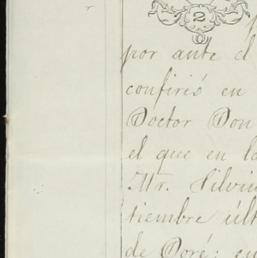 2
por ante el
confirió en
Doctor Don
el que en la
Mr. Silvin
tiembre últ
de Coré; en